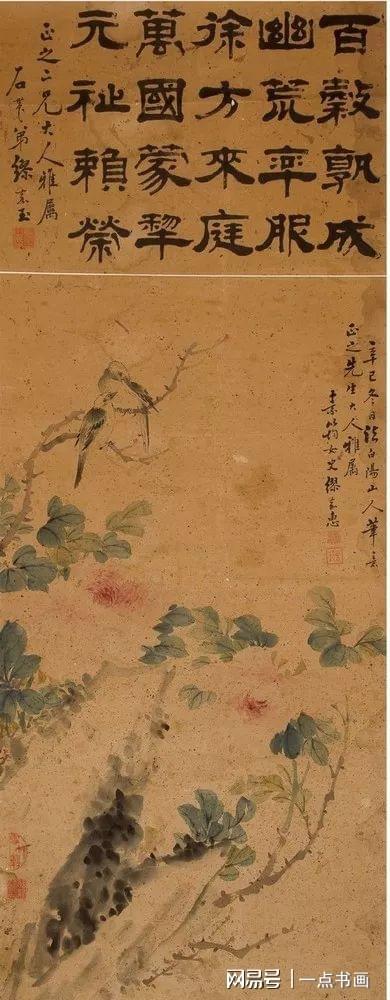 百穀孰成
幽荒率服
徐方來庭
萬國蒙犂
元祉賴榮
正之二兄大人雅属
弟繆嘉玉
辛巳冬日法白陽山人筆意
正之先生大人雅属
素筠女史繆嘉惠
网易号 | 一点书画